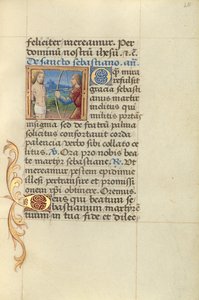 feliciter mereamur. Per
dominum nostrum ihesum. ⁊c.
De sancto sebastiano. añ.
O quam mira
refulsit
gracia sebasti
anus martir
inclitus qui
militis por
tans insignia
sed de fratrum palma
solicitus confortavit corda
palencia verbo sibi collato ce
litus. ℣. Ora pro nobis bea
te martyr sebastiane. ℟. Ut
mereamur pestem epidimie
illesi pertransire et promissi
onem xp̄i obtinere. Oremus.
Deus qui beatum se
bastianum martyrē
tuum in tua fide et dilec